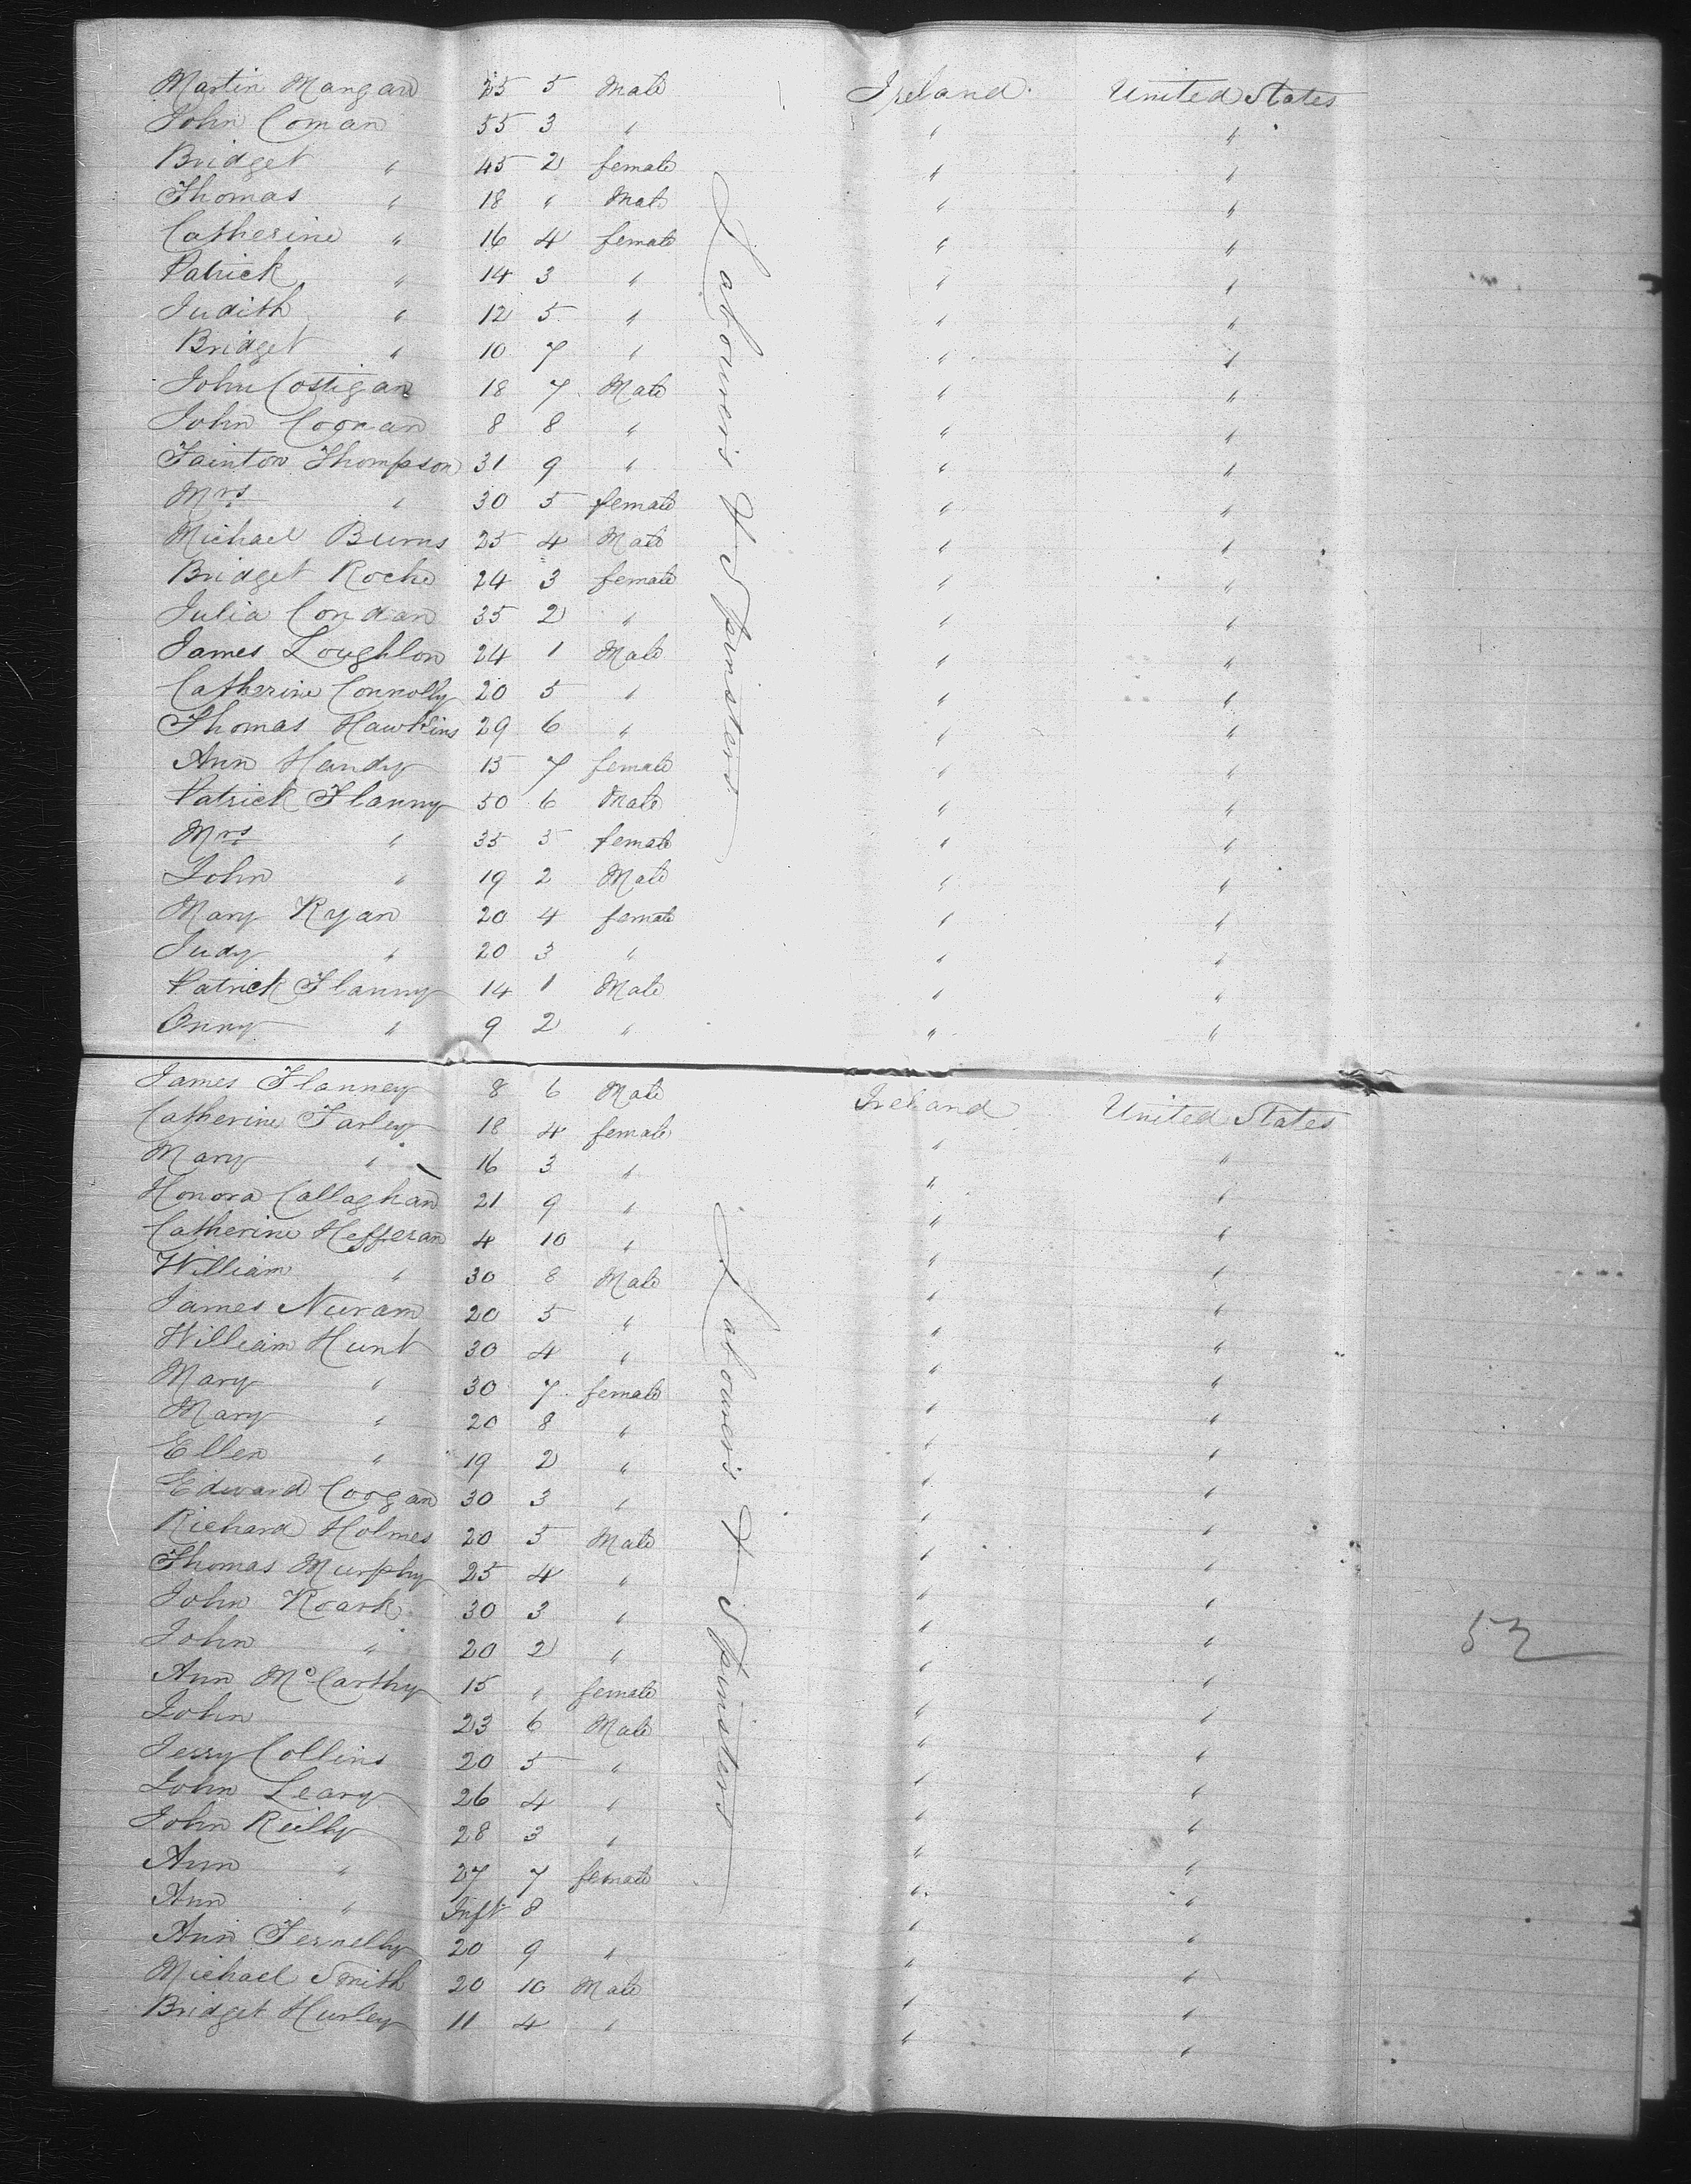 Martin Mangan 25 5 Male Ireland United States
John Coman 55 3 " " "
Bridget " 45 2 female " "
Thomas " 18 " Male " "
Catherine " 16 4 female " "
Patrick " 14 3 " " "
Judith " 12 5 " " "
Bridget " 10 7 " " "
John Costigan 18 7 Male " "
John Coonan 8 8 " " "
Fainton Thompson 31 9 " " "
Mrs " 30 5 female " "
Michael Burns 25 4 Male " "
Bridget Roche 24 3 female " "
Julia Condan 35 2 " " "
James Loughlon 24 1 Male " "
Catherine Connolly 20 5 " " "
Thomas Hawkins 29 6 " " "
Ann Handy 15 7 female " "
Patrick Flanny 50 6 Male " "
Mrs " 35 5 female " "
John " 19 2 Male " "
Mary Ryan 20 4 female " "
Judy " 20 3 " " "
Patrick Flanny 14 1 Male " "
Onny " 9 2 " " "
Labourer's & Spinsters
James Flanney 8 6 Male Ireland United States
Catherine Farley 18 4 female " "
Mary " 16 3 " " "
Honora Callaghan 21 9 " " "
Catherine Hefferan 4 10 " " "
William " 30 8 Male " "
James Nuram 20 5 " " "
William Hunt 30 4 " " "
Mary " 30 7 female " "
Mary " 20 8 " " "
Ellen " 19 2 " " "
Edward Coogan 30 3 " " "
Richard Holmes 20 5 Male " "
Thomas Murphy 25 4 " " "
John Roark 30 3 " " "
John " 20 2 " " "
Ann McCarthy 15 " female " "
John 23 6 Male " "
Jerry Collins 20 5 " " "
John Leary 26 4 " " "
John Reilly 28 3 " " "
Ann " 27 7 female " "
Ann " Inft 8 " "
Ann Fernelly 20 9 " " "
Michael Smith 20 10 Male " "
Bridget Hurley 11 4 " " "
Labourer's & Spinsters
53